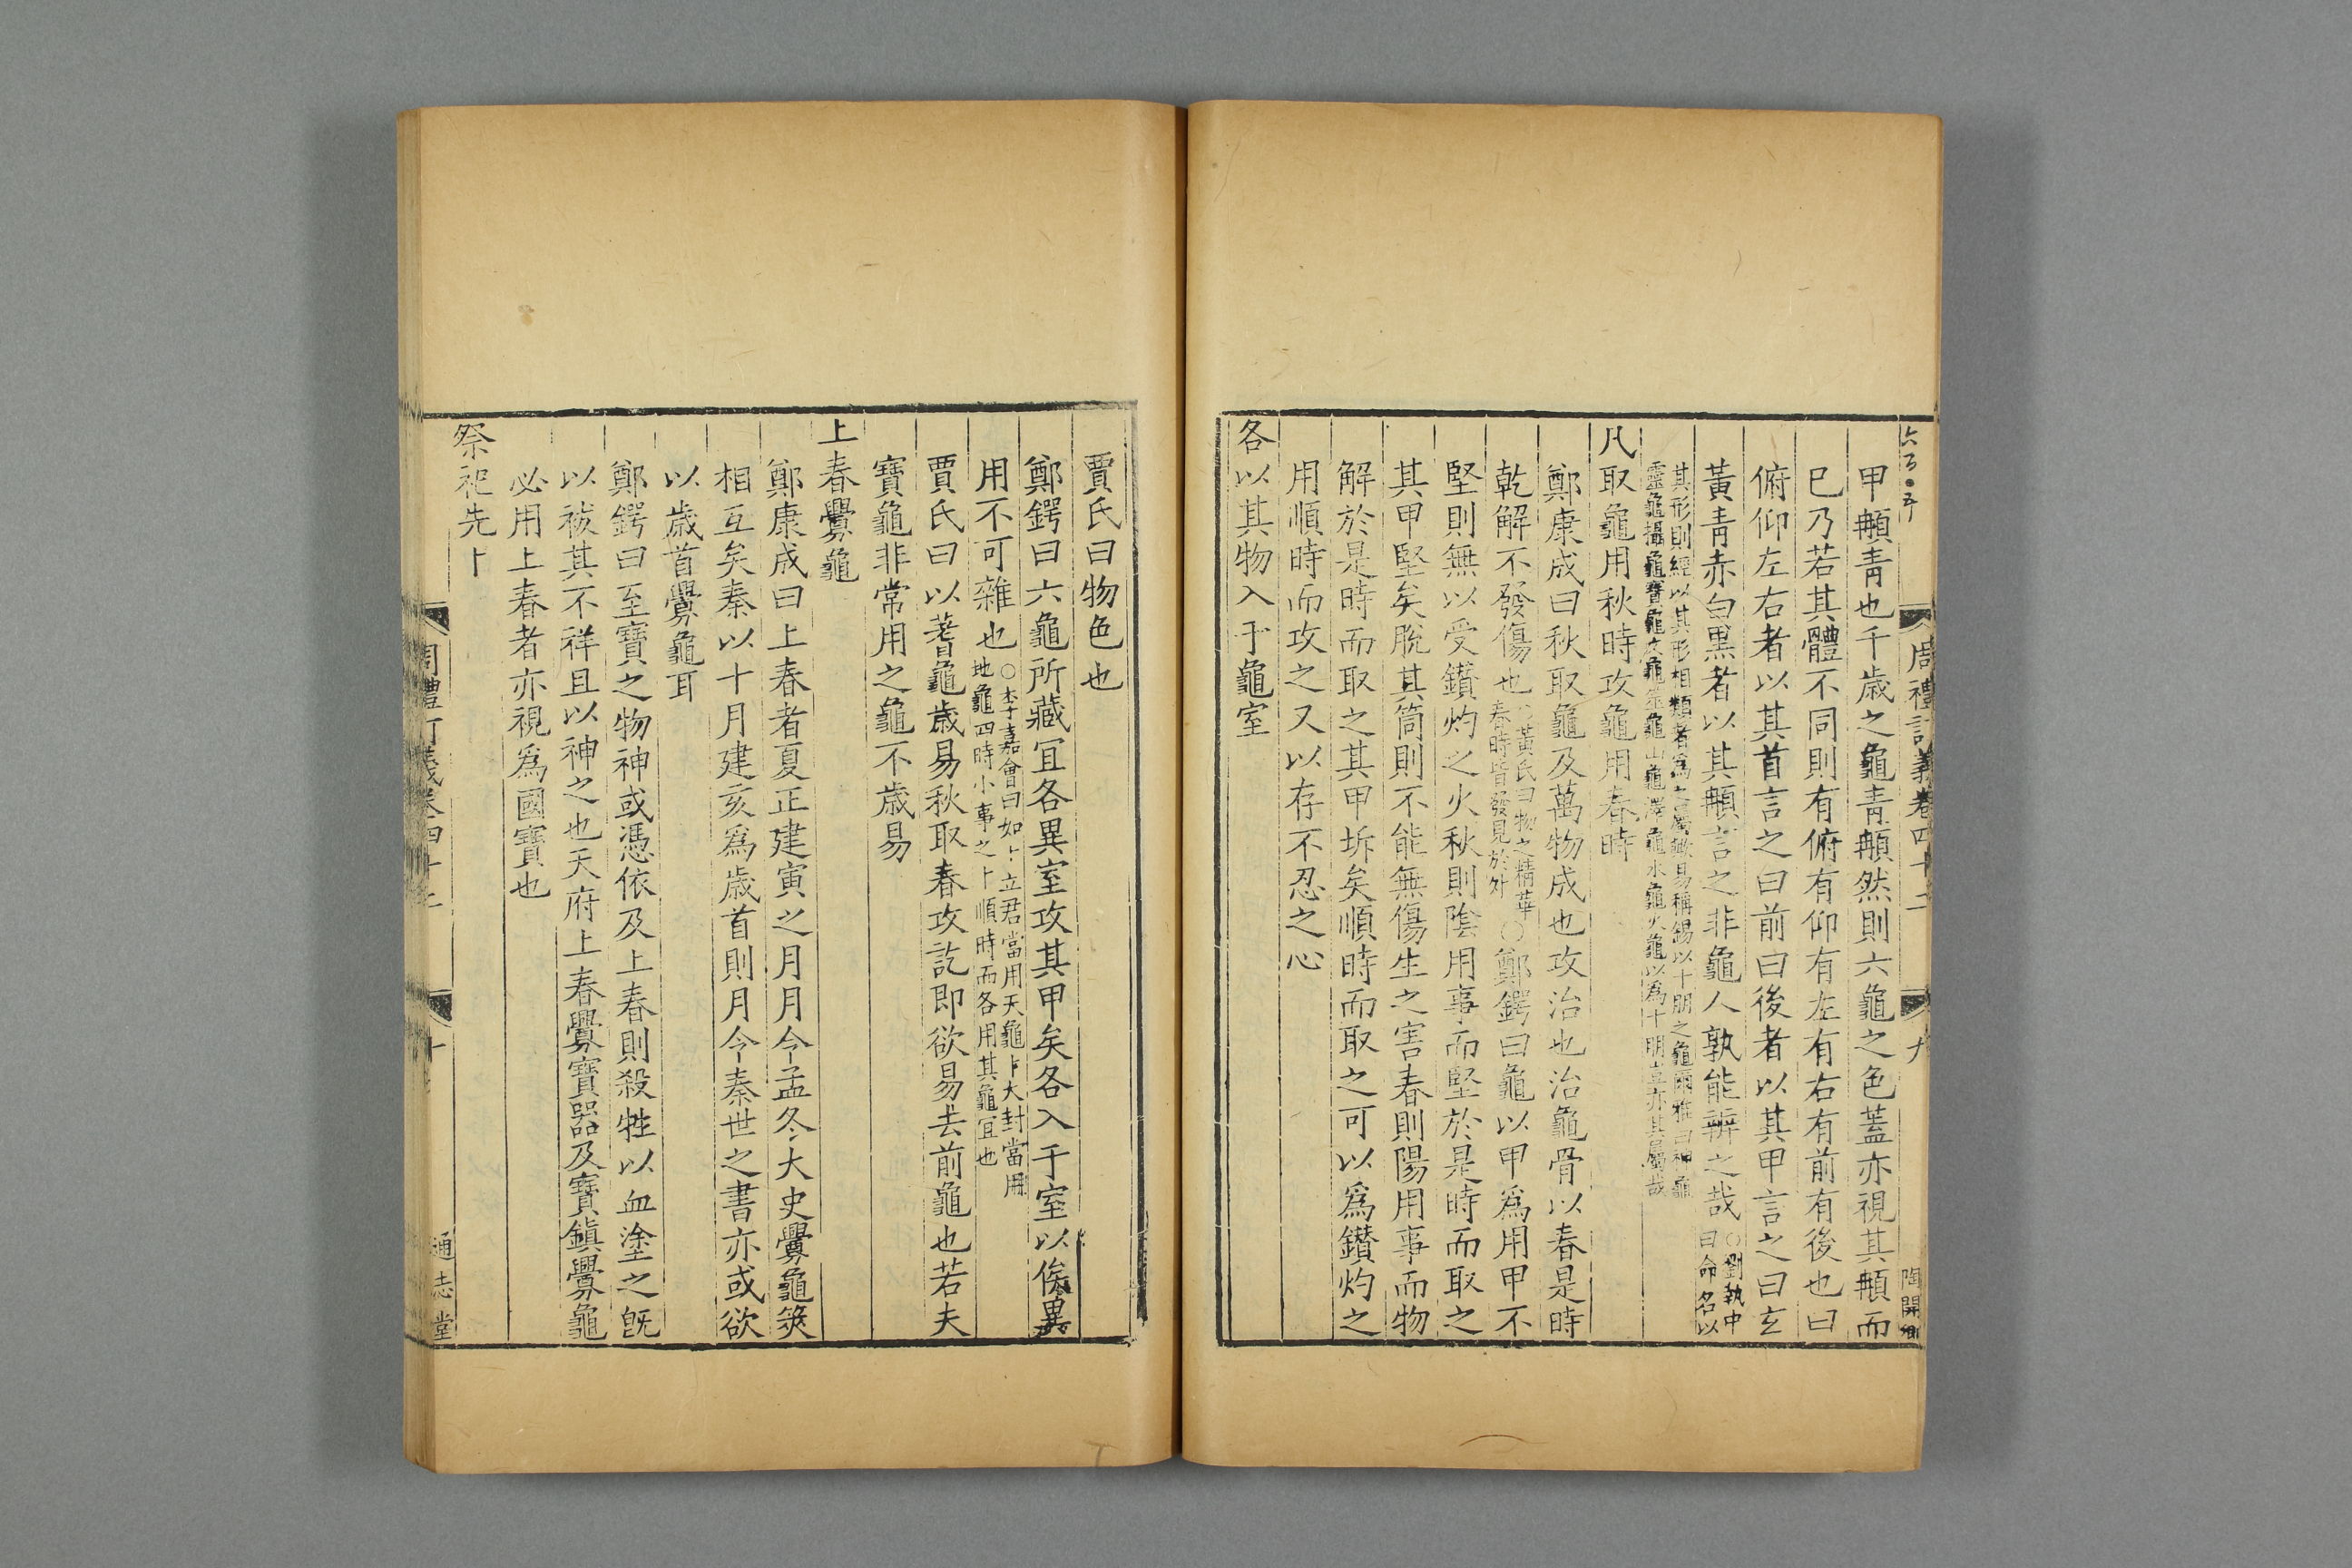 周禮訂義卷四十二
九
陶開卿
甲䫇青也千歳之龜青䫇然則六龜之色蓋亦視其䫇而
巳乃若其體不同則有俯有仰有左有右有前有後也曰
俯仰左右者以其首言之曰前曰後者以其甲言之曰玄
黃青赤白黒者以其䫇言之非龜人孰能辨之哉○劉執中曰命名以
其形則經以其形相類者為之屬歟易稱錫以十朋之龜爾雅曰神龜
靈龜攝龜寶龜文龜筮龜山龜澤龜水龜火龜以為十朋豈亦其屬哉
凡取龜用秋時攻龜用春時
鄭康成曰秋取龜及萬物成也攻治也治龜骨以春是時
乾解不發傷也○黃氏曰物之精華春時皆發見於外○鄭鍔曰龜以甲爲用甲不
堅則無以受鑽灼之火秋則陰用事而堅於是時而取之
其甲堅矣脫其筒則不能無傷生之害春則陽用事而物
解於是時而取之其甲坼矣順時而取之可以爲鑽灼之
用順時而攻之又以存不忍之心
各以其物入于龜室
賈氏曰物色也
鄭鍔曰六龜所藏宜各異室攻其甲矣各入于室以俟異
用不可雜也○李嘉會曰如卜立君當用天龜卜大封當用地龜四時小事之卜順時而各用其龜宜也
賈氏曰以蓍龜歳易秋取春攻訖即欲易去前龜也若夫
寶龜非常用之龜不歳易
上春釁龜
鄭康成曰上春者夏正建寅之月月令孟冬大史釁龜筴
相互矣秦以十月建亥爲歳首則月令秦世之書亦或欲
以歳首釁龜耳
鄭鍔曰至寶之物神或憑依及上春則殺牲以血塗之旣
以祓其不祥且以神之也天府上春釁寶器及寶鎮釁龜
必用上春者亦視爲國寶也
祭祀先卜
周禮訂義卷四十二
十
通志堂